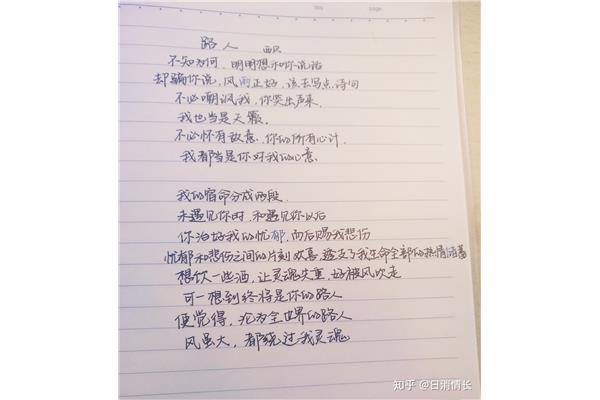 day
page
路人 西贝
不知为何,明明想和你说话
却骗你说,风雨正好,该去写点诗句
不必嘲讽我,你笑出声来,
我也当是天籁。
不必怀有敌意,你的所有心计
我都当是你对我的心意
我的宿命分成两段
未遇见你时,和遇见你以后
你治好我的忧郁,而后赐我悲伤
忧郁和悲伤之间的片刻欢喜,透支了我生命全部的热情储蓄
想饮一些酒,让灵魂失重,好被风吹走
可一想到终将是你的路人
便觉得,沦为全世界的路人
风虽大,都绕过我灵魂
知乎 @日消情长